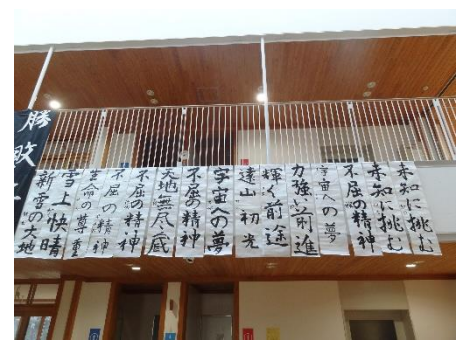 未知に挑む
未知に挑む
不屈の精神
宇宙への夢
力強い前進
輝く前途
遠山初光
宇宙への夢
不屈の精神
天地無尽蔵
不屈の精神
不屈の精神
生命の尊重
雪上快晴
新雪の大地
勝敗